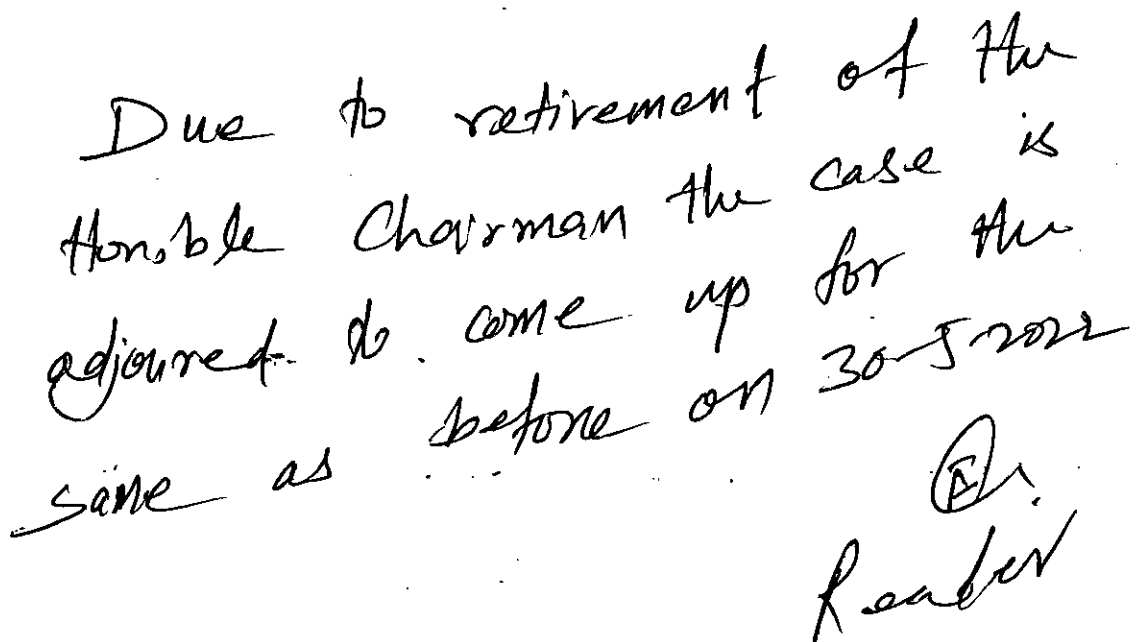 Due to retirement of the
Hon,ble Chairman the case is
adjoured to come up for the
same as before on 30-5-2022
Reader